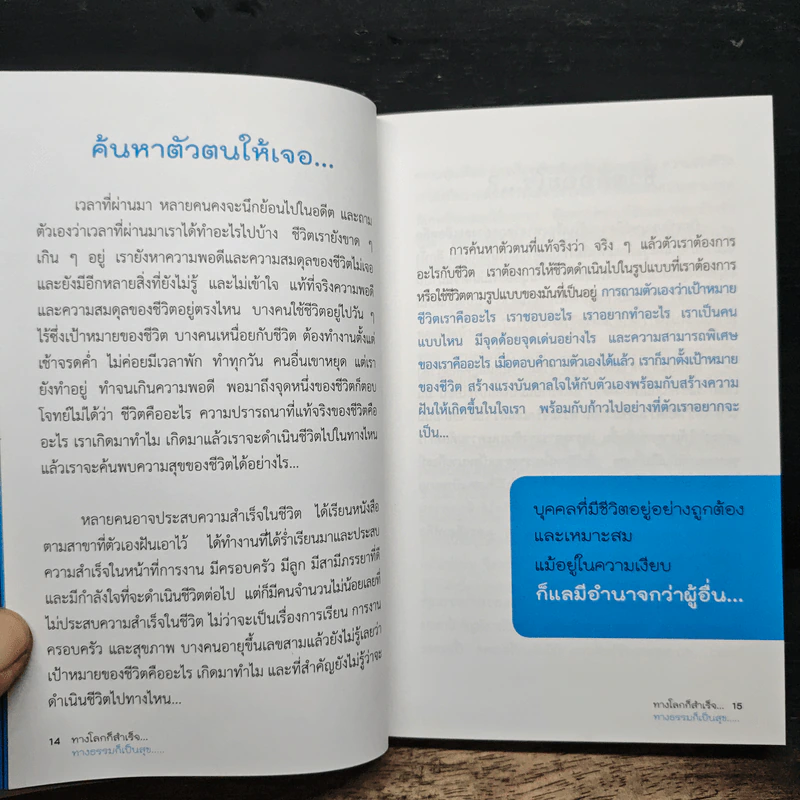 ค้นหาตัวตนให้เจอ...
เวลาที่ผ่านมา หลายคนคงจะนึกย้อนไปในอดีต และถาม
ตัวเองว่าเวลาที่ผ่านมาเราได้ทำอะไรไปบ้าง ชีวิตเรายังขาด ๆ
เกิน ๆ อยู่ เรายังหาความพอดีและความสมดุลของชีวิตไม่เจอ
และยังมีอีกหลายสิ่งที่ยังไม่รู้ และไม่เข้าใจ แท้ที่จริงความพอดี
และความสมดุลของชีวิตอยู่ตรงไหน บางคนใช้ชีวิตอยู่ไปวัน ๆ
ไร้ซึ่งเป้าหมายของชีวิต บางคนเหนื่อยกับชีวิต ต้องทำงานตั้งแต่
เช้าจรดค่ำ ไม่ค่อยมีเวลาพัก ทำทุกวัน คนอื่นเขาหยุด แต่เรา
ยังทำอยู่ ทำจนเกินความพอดี พอมาถึงจุดหนึ่งของชีวิตก็ตอบ
โจทย์ไม่ได้ว่า ชีวิตคืออะไร ความปรารถนาที่แท้จริงของชีวิตคือ
อะไร เราเกิดมาทำไม เกิดมาแล้วเราจะดำเนินชีวิตไปในทางไหน
แล้วเราจะค้นพบความสุขของชีวิตได้อย่างไร...
หลายคนอาจประสบความสำเร็จในชีวิต ได้เรียนหนังสือ
ตามสาขาที่ตัวเองฝันเอาไว้ ได้ทำงานที่ได้ร่ำเรียนมาและประสบ
ความสำเร็จในหน้าที่การงาน มีครอบครัว มีลูก มีสามีภรรยาที่ดี
และมีกำลังใจที่จะดำเนินชีวิตต่อไป แต่ก็มีคนจำนวนไม่น้อยเลยที่
ไม่ประสบความสำเร็จในชีวิต ไม่ว่าจะเป็นเรื่องการเรียน การงาน
ครอบครัว และสุขภาพ บางคนอายุขึ้นเลขสามแล้วยังไม่รู้เลยว่า
เป้าหมายของชีวิตคืออะไร เกิดมาทำไม และที่สำคัญยังไม่รู้ว่าจะ
ดำเนินชีวิตไปทางไหน...
14 ทางโลกก็สำเร็จ...
ทางธรรมก็เป็นสุข.....
การค้นหาตัวตนที่แท้จริงว่า จริง ๆ แล้วตัวเราต้องการ
อะไรกับชีวิต เราต้องการให้ชีวิตดำเนินไปในรูปแบบที่เราต้องการ
หรือใช้ชีวิตตามรูปแบบของมันที่เป็นอยู่ การถามตัวเองว่าเป้าหมาย
ชีวิตเราคืออะไร เราชอบอะไร เราอยากทำอะไร เราเป็นคน
แบบไหน มีจุดด้อยจุดเด่นอย่างไร และความสามารถพิเศษ
ของเราคืออะไร เมื่อตอบคำถามตัวเองได้แล้ว เราก็มาตั้งเป้าหมาย
ของชีวิต สร้างแรงบันดาลใจให้กับตัวเองพร้อมกับสร้างความ
ฝันให้เกิดขึ้นในใจเรา พร้อมกับก้าวไปอย่างที่ตัวเราอยากจะ
เป็น...
บุคคลที่มีชีวิตอยู่อย่างถูกต้อง
และเหมาะสม
แม้อยู่ในความเงียบ
ก็แลมีอำนาจกว่าผู้อื่น...
ทางโลกก็สำเร็จ... 15
ทางธรรมก็เป็นสุข.....